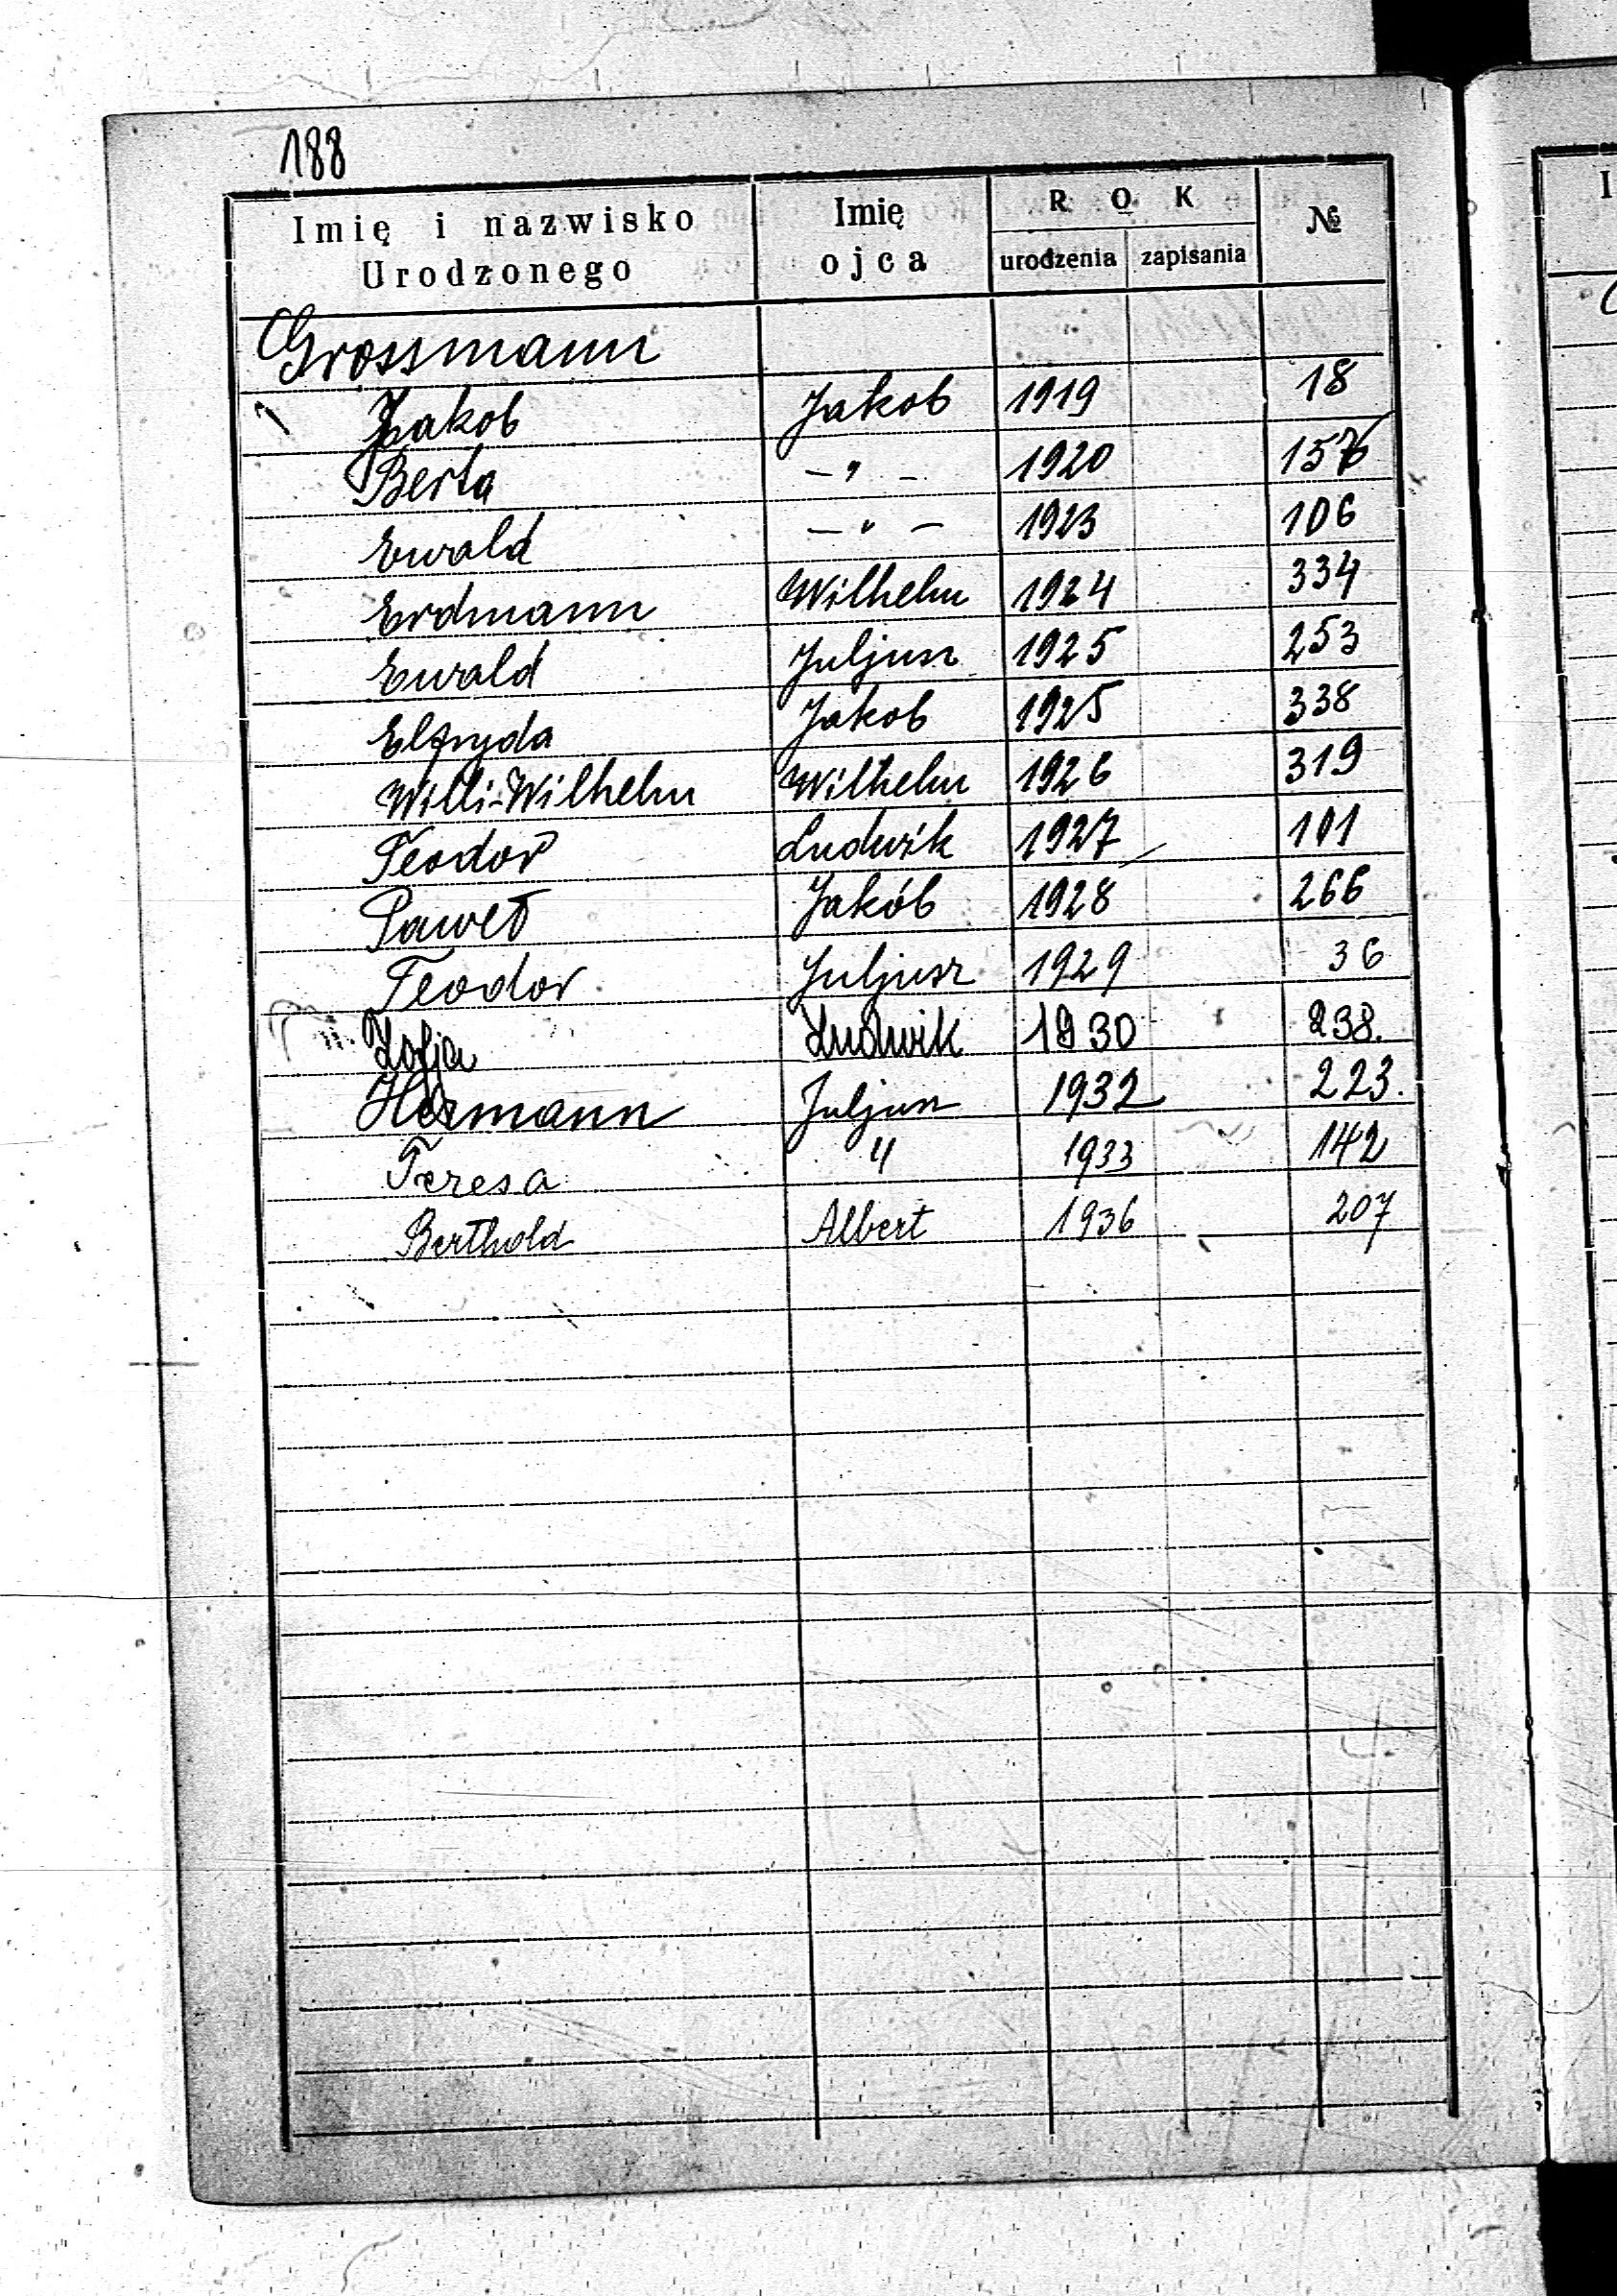 188
Imię i nazwisko Urodzonego Imię ojca ROK №
urodzenia zapisania
Grossmann
Jakob Jakob 1919 18
Berta — " — 1920
Ewald — " — 1923 106
Erdmann Wilhelm 1924 334
Ewald Juljusz 1925 253
Elfryda Jakob 1925 338
Willi-Wilhelm Wilhelm 1926 319
Teodor Ludwik 1927 101
Paweł Jakób 1928 266
Teodor Juljusz 1929 36
Zofja Ludwik 1930 238.
Hermann Juljusz 1932 223.
Teresa " 1933 142
Berthold Albert 1936 207